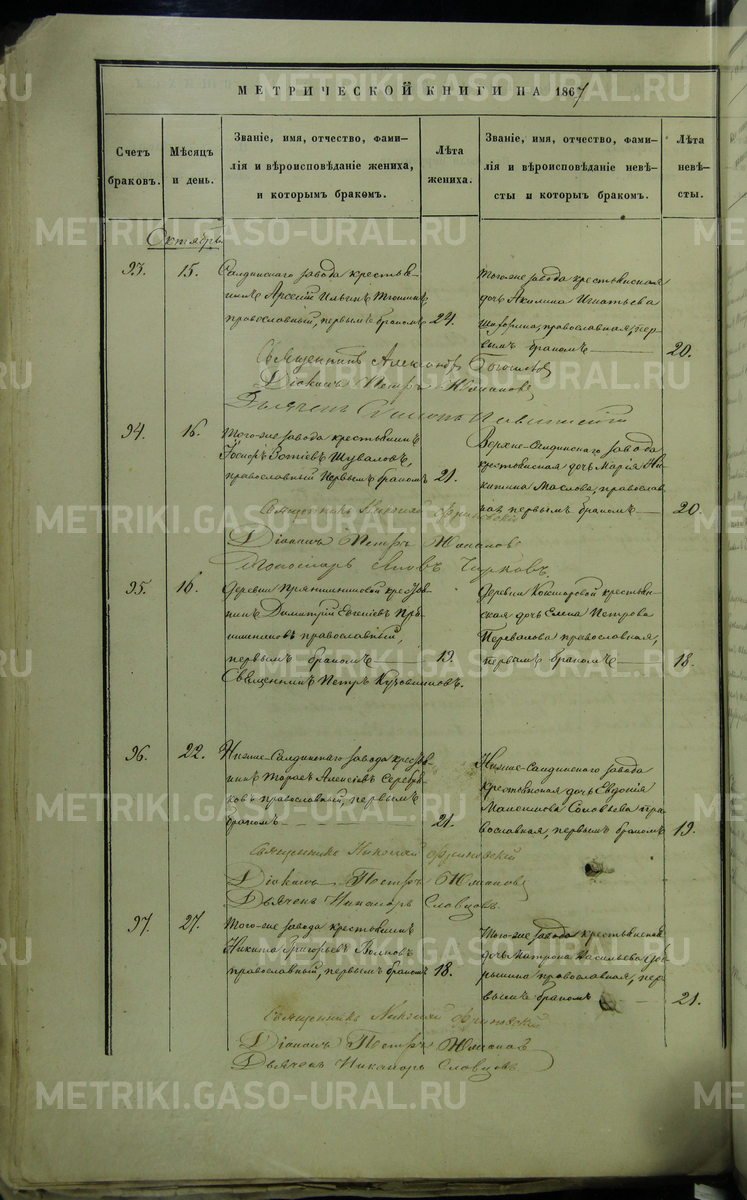 МЕТРИЧЕСКОЙ КНИГИ НА 1867
Счетъ браковъ.
Мѣсяцъ и день.
Званіе, имя, отчество, фами-
лія и вѣроисповѣданіе жениха,
и которымъ бракомъ.
Лѣта жениха.
Званіе, имя, отчество, фами-
лія и вѣроисповѣданіе невѣ-
сты и которымъ бракомъ.
Лѣта невѣ-
сты.
Октябрь
93. 15.
Салдинскаго завода крестья-
нинъ Арсеній Ильинъ
православный, первымъ бракомъ 24.
Того-же завода крестьянская
дочь Акилина Игнатьева
православная, пер-
вымъ бракомъ 20.
Священникъ Александръ
Діаконъ Петръ
Дьячекъ
94. 16.
Того-же завода крестьянинъ
Шуваловъ,
православный первымъ бракомъ 21.
Верхне-Салдинскаго завода
крестьянская дочь Марія Ни-
китина Маслова, православ-
ная, первымъ бракомъ 20.
Священникъ Николай
Діаконъ Петръ
Яковъ
95. 16.
Деревни крестья-
нинъ Димитрій Евгеніевъ
православный,
первымъ бракомъ 19.
Деревни крестьян-
ская дочь Елена Петрова
Перевалова православная,
первымъ бракомъ 18.
Священникъ Петръ
96. 22.
Нижне-Салдинскаго завода крестья-
нинъ Алексіевъ Серебря-
ковъ православный, первымъ
бракомъ 21.
Нижне-Салдинскаго завода
крестьянская дочь Евдокія
Максимова Соловьева пра-
вославная, первымъ бракомъ 19.
Священникъ Николай
Діаконъ Петръ
Дьячекъ Никаноръ Словцовъ.
97. 27.
Того-же завода крестьянинъ
Никита Григорьевъ Волковъ
православный, первымъ бракомъ 18.
Того-же завода крестьянская
дочь Матрона Васильева
православная, пер-
вымъ бракомъ 21.
Священникъ Николай
Діаконъ Петръ
Дьячекъ Никаноръ Словцовъ
METRIKI.GASO-URAL.RU